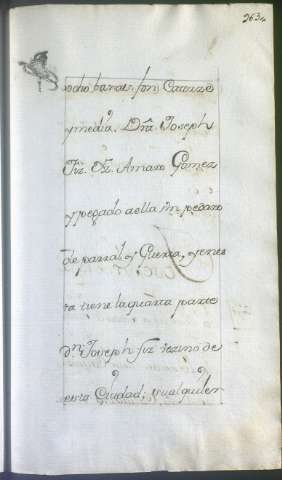 263
ocho baras, son
y media. Dn. Joseph
Amaro Gomez
y pegado a ella un pedazo
de parral, y Guerta, y en es
ta tiene la quarta parte
Dn. Joseph vezino de
esta Ciudad, qualquier